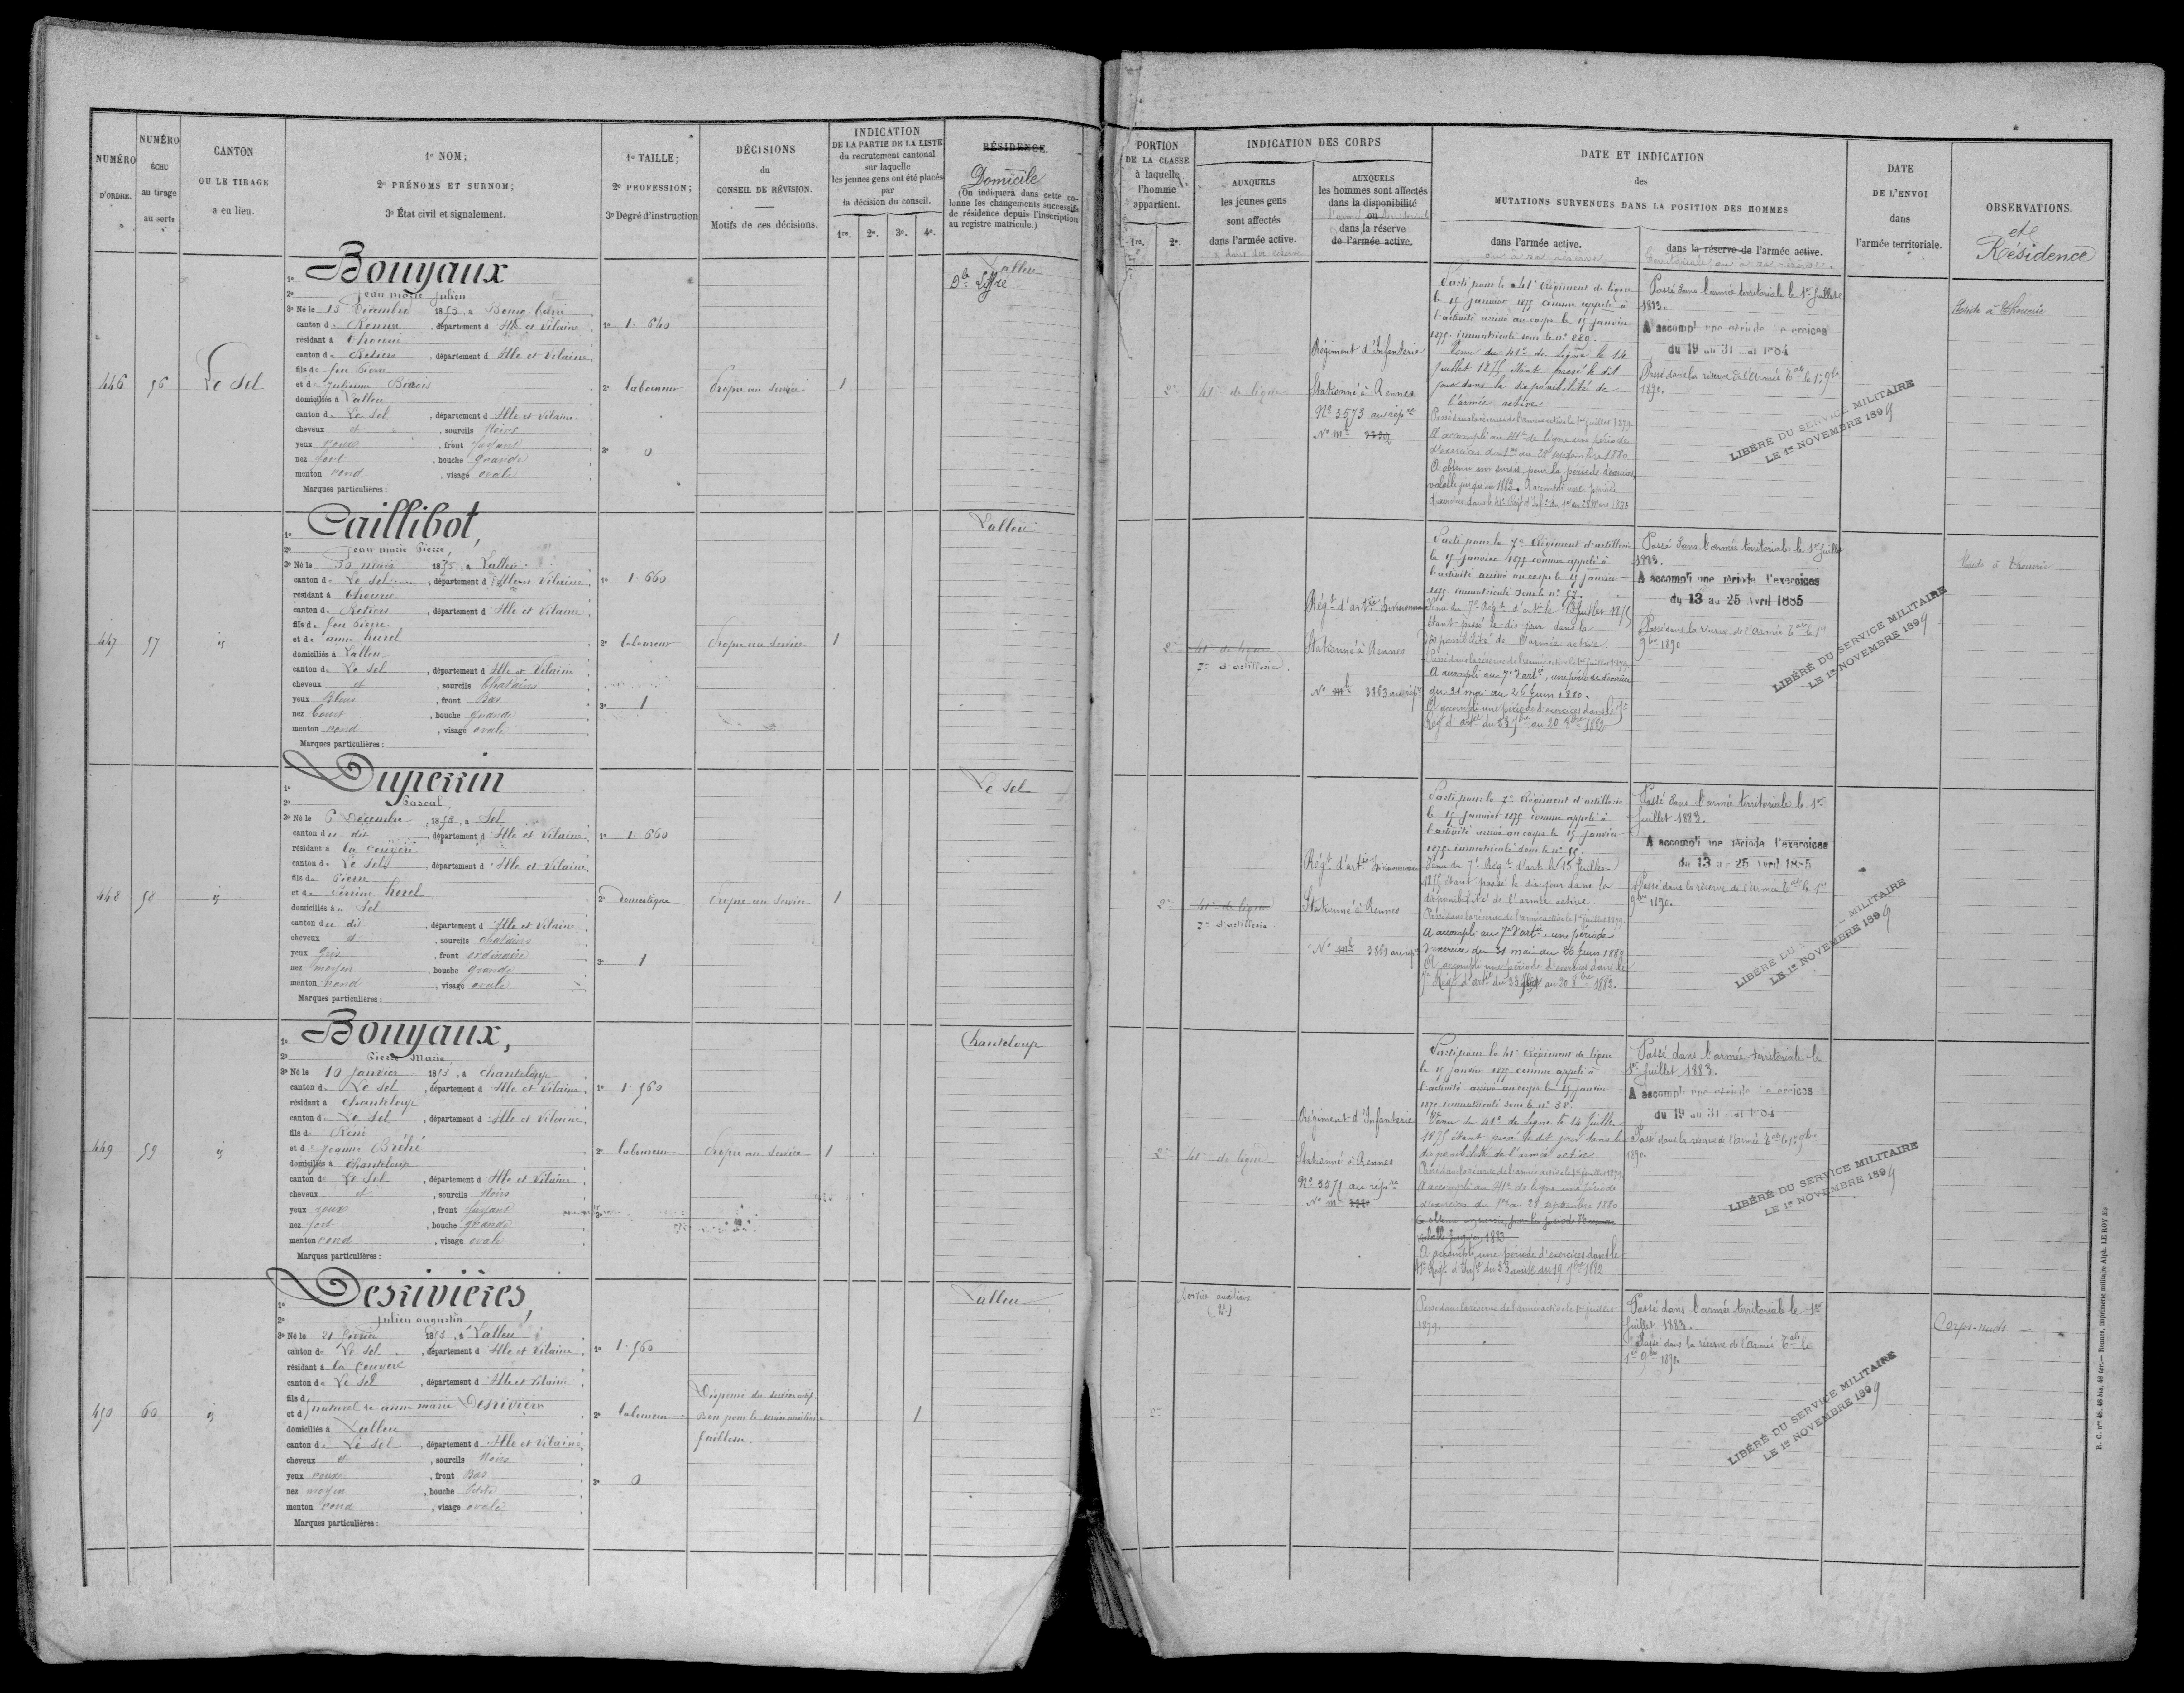 NUMÉRO
D'ORDRE.
NUMÉRO
ÉCHU
au tirage
au sort.
CANTON
OU LE TIRAGE
a eu lieu.
1º NOM;
2º PRÉNOMS ET SURNOM;
3º État civil et signalement.
1º TAILLE;
2º PROFESSION;
3º Degré d'instruction
DÉCISIONS
du
CONSEIL DE RÉVISION.
Motifs de ces décisions.
INDICATION
DE LA PARTIE DE LA LISTE
du recrutement cantonal
sur laquelle
les jeunes gens ont été placés
par
la décision du conseil.
1re. 2e. 3e. 4e.
RÉSIDENCE
Domicile
(On indiquera dans cette co-
lonne les changements successifs
de résidence depuis l'inscription
au registre matricule.)
446 56 Le Sel
1º Bouyaux
2º Jean marie Julien
3º Né le 15 Décembre 1853, à Bourg
canton de Rennes, département d'Ille et Vilaine
résidant à Thourie
canton de Retiers, département d'Ille et Vilaine
fils de feu Pierre
et de Julienne
domiciliés à Lalleu
canton de Le Sel, département d'Ille et Vilaine
cheveux et, sourcils Noirs
yeux roux, front fuyant
nez fort, bouche grande
menton rond, visage ovale
Marques particulières :
1º 1. 640
2º laboureur
3º 0
Propre au service
1
Lalleu
Dle Liffré
447 57 id
1º Caillibot,
2º Jean marie Pierre,
3º Né le 30 mars 1853, à Lalleu
canton de Le Sel, département d'Ille et Vilaine
résidant à Thourie
canton de Retiers, département d'Ille et Vilaine
fils de feu Pierre
et de anne hurel
domiciliés à Lalleu
canton de Le Sel, département d'Ille et Vilaine
cheveux et, sourcils Chatains
yeux Bleus, front Bas
nez court, bouche grande
menton rond, visage ovale
Marques particulières :
1º 1. 660
2º laboureur
3º 1
Propre au service
1
Lalleu
448 58 id
1º Duperrin
2º Pascal,
3º Né le 6 Décembre 1853, à Sel
canton du dit, département d'Ille et Vilaine
résidant à la couyère
canton de Le Sel, département d'Ille et Vilaine
fils de Pierre
et de Perrine hurel
domiciliés à u Sel
canton du dit, département d'Ille et Vilaine
cheveux et, sourcils chatains
yeux gris, front ordinaire
nez moyen, bouche grande
menton rond, visage ovale
Marques particulières :
1º 1. 660
2º domestique
3º 1
Propre au service
1
Le Sel
449 59 id
1º Bouyaux,
2º Pierre Marie
3º Né le 10 janvier 1853, à chanteloup
canton de Le Sel, département d'Ille et Vilaine
résidant à chanteloup
canton de Le Sel, département d'Ille et Vilaine
fils de René
et de Jeanne Bréhé
domiciliés à chanteloup
canton de Le Sel, département d'Ille et Vilaine
cheveux et, sourcils Noirs
yeux roux, front fuyant
nez fort, bouche grande
menton rond, visage ovale
Marques particulières :
1º 1. 560
2º laboureur
3º
Propre au service
1
Chanteloup
450 60 id
1º Desrivières,
2º Julien augustin
3º Né le 21 février 1853, à Lalleu
canton de Le Sel, département d'Ille et Vilaine
résidant à la Couyère
canton de Le Sel, département d'Ille et Vilaine
fils d naturel de anne marie Desrivière
et d
domiciliés à Lalleu
canton de Le Sel, département d'Ille et Vilaine
cheveux et, sourcils Noirs
yeux roux, front Bas
nez moyen, bouche Petite
menton rond, visage ovale
Marques particulières :
1º 1. 560
2º laboureur
3º 0
Dispensé du service actif.
Bon pour le service auxiliaire
faiblesse.
1
Lalleu
PORTION
DE LA CLASSE
à laquelle
l'homme
appartient.
1re. 2e.
INDICATION DES CORPS
AUXQUELS
les jeunes gens
sont affectés
dans l'armée active.
AUXQUELS
les hommes sont affectés
dans la disponibilité
ou
dans la réserve
de l'armée active.
DATE ET INDICATION
des
MUTATIONS SURVENUES DANS LA POSITION DES HOMMES
dans l'armée active.
ou à sa réserve
dans la réserve de l'armée active.
territoriale ou à sa réserve.
DATE
DE L'ENVOI
dans
l'armée territoriale.
OBSERVATIONS.
et
Résidence
2e
41e de ligne
Régiment d'Infanterie
Stationné à Rennes
Nº 3573 au répre
Nº Mle
Parti pour le 41e Régiment de ligne
le 15 Janvier 1875 comme appelé à
l'activité arrivé au corps le 15 janvier
1875 immatriculé sous le nº 229.
Venu du 41e de Ligne le 14
Juillet 1875 étant passé le dit
jour dans la disponibilité de
l'armée active
Passé dans la réserve de l'armée active le 1er juillet 1879.
A accompli au 41e de ligne une période
d'exercices du 1er au 28 septembre 1880
A obtenu un sursis pour la période d'exercices
valable jusqu'en 1883. A accompli une période
d'exercices dans le 41e Régt d'Infie du 1er au 28 Mars 1883
Passé dans l'armée territoriale le 1er Juillet
1883.
A accompli une période d'exercices
du 19 au 31 mai 1884
Passé dans la réserve de l'Armée Tale le 1er 9bre
1890.
LIBÉRÉ DU SERVICE MILITAIRE
LE 1er NOVEMBRE 1899
Réside à Thourie
2e
41e de ligne
7e d'artillerie.
Régt d'artie Divisionnaire
Stationné à Rennes
Nº mle 3363 au répre
Parti pour le 7e Régiment d'artillerie
le 15 janvier 1875 comme appelé à
l'activité arrivé au corps le 15 janvier
1875 immatriculé sous le nº 57.
Venu du 7e Régt d'art le 13 Juillet 1875
étant passé le dit jour dans la
disponibilité de l'armée active
Passé dans la réserve de l'armée active le 1er juillet 1879.
A accompli au 7e d'artie, une période d'exercice
du 31 mai au 26 Juin 1880.
A accompli une période d'exercices dans le 7e
Régt d'artie du 23 7bre au 20 8bre 1882
Passé dans l'armée territoriale le 1er Juillet
1883.
A accompli une période d'exercices
du 13 au 25 Avril 1885
Passé dans la réserve de l'Armée Tale le 1er
9bre 1890
LIBÉRÉ DU SERVICE MILITAIRE
LE 1er NOVEMBRE 1899
Réside à Thourie
2e
41e de ligne
7e d'artillerie
Régt d'artie Divisionnaire
Stationné à Rennes
Nº mle 3369 au répre
Parti pour le 7e Régiment d'artillerie
le 15 janvier 1875 comme appelé à
l'activité arrivé au corps le 15 janvier
1875 immatriculé sous le nº 55.
Venu du 7e Régt d'art le 13 Juillet
1875 étant passé le dit jour dans la
disponibilité de l'armée active
Passé dans la réserve de l'armée active le 1er juillet 1879.
A accompli au 7e d'artie, une période
d'exercice du 31 mai au 26 Juin 1880
A accompli une période d'exercices dans le
7e Régt d'artie du 23 au 20 8bre 1882.
Passé dans l'armée territoriale le 1er
Juillet 1883.
A accompli une période d'exercices
du 13 au 25 Avril 1885
Passé dans la réserve de l'Armée Tale le 1er
9bre 1890.
LIBÉRÉ DU SERVICE MILITAIRE
LE 1er NOVEMBRE 1899
2e
41e de ligne
Régiment d'Infanterie
Stationné à Rennes
Nº 3571 au répre
Nº Mle
Parti pour le 41e Régiment de ligne
le 15 janvier 1875 comme appelé à
l'activité arrivé au corps le 15 janvier
1875 immatriculé sous le nº 38.
Venu du 41e de Ligne le 14 Juillet
1875 étant passé le dit jour dans la
disponibilité de l'armée active
Passé dans la réserve de l'armée active le 1er juillet 1879
A accompli au 41e de ligne une période
d'exercices du 1er au 28 septembre 1880
A obtenu un sursis pour la période d'exercices
valable jusqu'en 1883
A accompli une période d'exercices dans le
41e Régt d'Infie du 23 août au 19 7bre 1882
Passé dans l'armée territoriale le
1er Juillet 1883.
A accompli une période d'exercices
du 19 au 31 mai 1884
Passé dans la réserve de l'Armée Tale le 1er 9bre
1890
LIBÉRÉ DU SERVICE MILITAIRE
LE 1er NOVEMBRE 1899
2e
Service auxiliaire
Passé dans la réserve de l'armée active le 1er juillet
1879.
Passé dans l'armée territoriale le 1er
Juillet 1883.
Passé dans la réserve de l'Armée Tale le
1er 9bre 1890
LIBÉRÉ DU SERVICE MILITAIRE
LE 1er NOVEMBRE 1899
Corps-nuds
R. C. nos 48, 48 bis, 48 ter.— Rennes, imprimerie militaire Alph. LE ROY fils